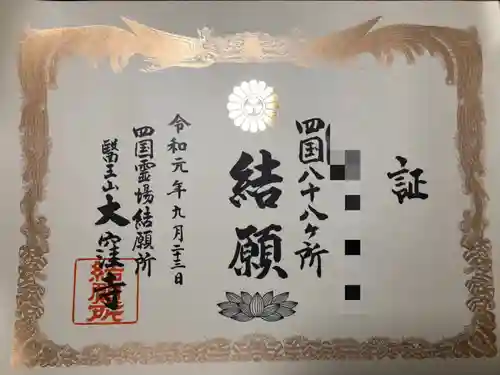 証
四国八十八ヶ所
結願
令和元年九月二十三日
四国霊場結願所
醫王山大窪寺
結願所